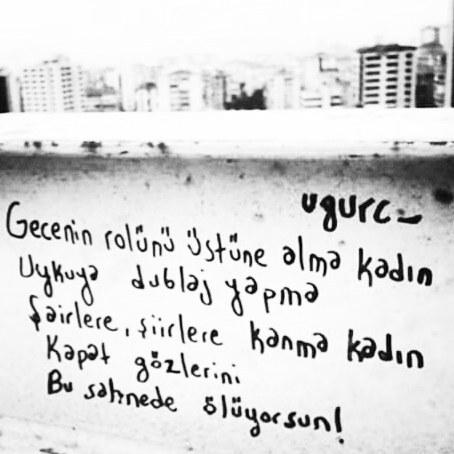 ugurc_
Gecenin rolünü üstüne alma kadın
Uykuya dublaj yapma
Şairlere, şiirlere kanma kadın
Kapat gözlerini
Bu sahnede ölüyorsun!